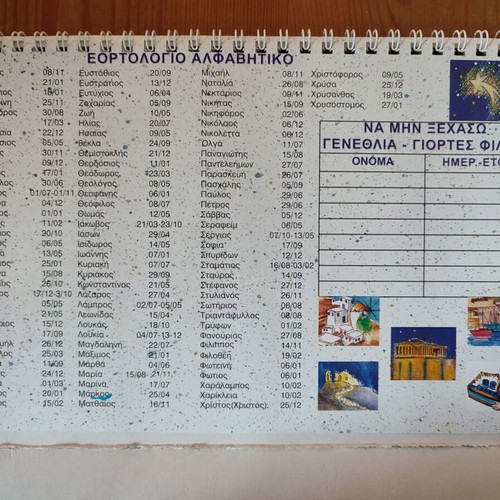 ΕΟΡΤΟΛΟΓΙΟ ΑΛΦΑΒΗΤΙΚΟ
08/11
21/01
25/11
30/08
17/03
22/12
05/05
30/11
09/12
17/01
01/07-01/11
04/12
20/10
06/12
13/05
25/01
26/10
17/12-3/10
05/05
21/05
17/09
26/12
25/03
01/03
20/01
15/02
Ευστάθιος 20/09
Ευστράτιος 13/12
Ευτύχιος 06/04
Ζαχαρίας 05/09
Ζωή 10/05
Ηλίας 20/07
Ησαΐας 09/05
Θέκλα 24/09
Θεμιστοκλής 21/12
Θεοδόσιος 11/01
Θεόδωρος 23/03
Θεολόγος 08/05
Θεοφάνης 06/01
Θεόφιλος 08/07
Θωμάς 12/05
Ιάκωβος 21/03-23/10
Ιασών 29/04
Ισίδωρος 14/05
Ιωάννης 07/01
Κυριακή 07/07
Κυριάκος 29/09
Κωνσταντίνος 21/05
Λάζαρος 27/04
Λάμπρος 02/07-05/05
Λεωνίδας 15/04
Λουκάς 18/10
Λουκία 04/07-13/12
Μαγδαληνή 22/07
Μάξιμος 21/01
Μάρθα 04/06
Μαρία 15/08-21/11
Μαρίνα 17/07
Μάρκος 25/04
Ματθαίος 16/11
Μιχαήλ 08/11
Ναταλία 26/08
Νεκτάριος 09/11
Νικήτας 15/09
Νικηφόρος 02/06
Νικόλαος 06/12
Νικολέττα 06/12
Όλγα 11/07
Παναγιώτης 15/08
Παντελεήμων 27/07
Παρασκευή 26/07
Πασχάλης 05/05
Παύλος 29/06
Πέτρος 29/06
Σάββας 05/12
Σεραφείμ 06/05
Σέργιος 07/10-13/05
Σοφία 17/09
Σπυρίδων 12/12
Σταμάτιος 16/08-03/02
Σταύρος 14/09
Στέφανος 27/12
Στυλιανός 26/11
Σωτήριος 06/08
Τριαντάφυλλος 08/08
Τρύφων 01/02
Φανούριος 27/08
Φίλιππος 14/11
Φιλοθέη 19/02
Φωτεινή 06/01
Φώτιος 06/01
Χαράλαμπος 10/02
Χαρίκλεια 10/02
Χρίστος(Χρηστός) 25/12
Χριστόφορος 09/05
Χρύσα 25/12
Χρύσανθος 19/03
Χρυσόστομος 27/01
ΝΑ ΜΗΝ ΞΕΧΑΣΩ
ΓΕΝΕΘΛΙΑ - ΓΙΟΡΤΕΣ ΦΙΛ
ΟΝΟΜΑ ΗΜΕΡ.-ΕΤΟ